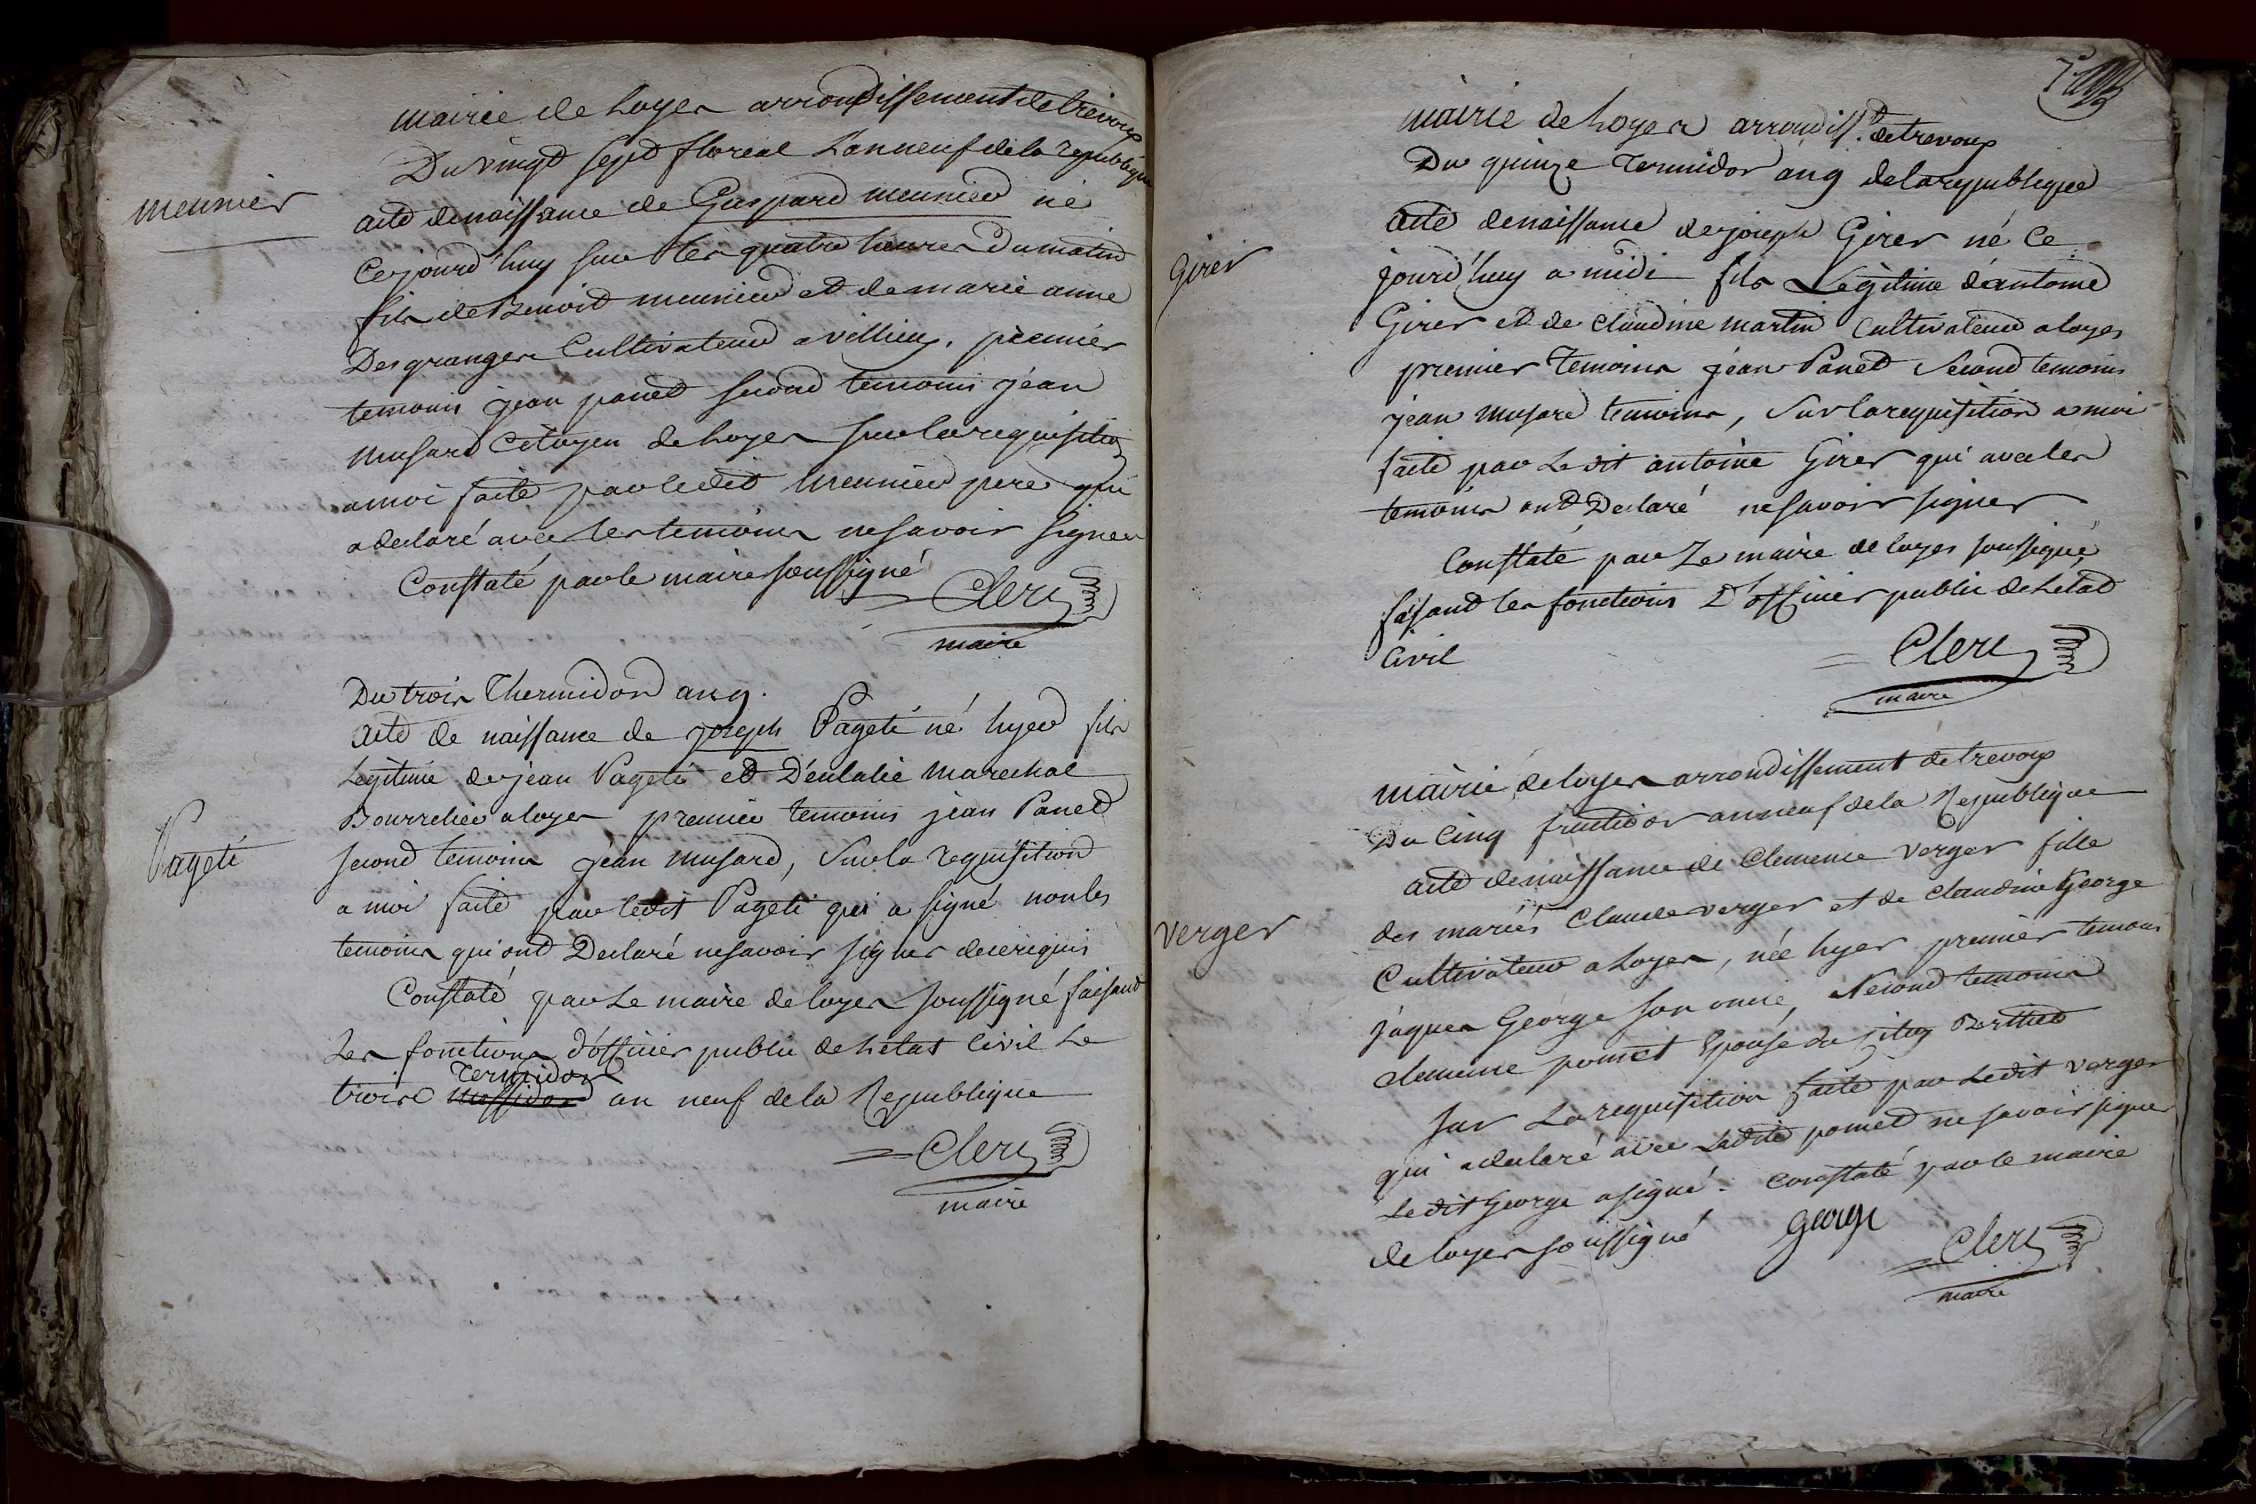 mairie de Loyes arrondissement de trevoux
Du vingt sept floreal L'an neuf de la republique
meunier
acte de naissance de Gaspard meunier né
Cejourd'huy sur les quatre heures du matin
fils de Benoit meunier et de marie anne
Desgranges Cultivateur a villieu, premier
temoin jean panet second temoins jean
musard Citoyen de Loyes sur la requisition
a moi faite par ledit meunier pere qui
a declaré avec les temoins ne savoir signer
Constaté par le maire soussigné
Clerc
maire
Du trois Thermidor an 9.
acte de naissance de joseph Pageté né hyer fils
Legitime de jean Pageté et D'eulalie marechal
Bourrelier a loyes premier temoins jean Panet
Pageté
second temoins jean musard, Sur la requisition
a moi faite par ledit Pageté qui a signé non les
temoins qui ont Declaré ne savoir signer de ce requis
Constaté par Le maire de loyes soussigné faisant
Les fonctions d'officier public de L'état Civil Le
Termidor
trois messidor an neuf de la Republique
Clerc
maire
mairie de Loyes arrondiss.t de trevoux
Du quinze Termidor an 9 de la republique
acte de naissance de joseph Girer né Ce
Girer
jourd'huy a midi fils Légitime d'antoine
Girer et de claudine martin Cultivateur a loyes
premier Temoins jean Panet Second temoins
jean musard temoins, Sur la requisition a moi
faite par Le dit antoine Girer qui avec les
temoins ont Declaré ne savoir signer
Constaté par Le maire de loyes soussigné,
faisant les fonctions D'officier public de L'etat
Civil
Clerc
maire
mairie de loyes arrondissement de trevoux
Du Cinq fructidor an neuf de la Republique
acte de naissance de Clemence verger fille
des mariés Claude verger et de claudine George
verger
Cultivateur a Loyes, née hyer premier temoins
jaques George son oncle, Second temoins
clemence pomet Epouse du Citoy Berthet
sur La requisition faite par Ledit verger
qui a declaré avec Ladite pomet ne savoir signer
Ledit George a signé. Constaté par le maire
de loyes soussigné
George
Clerc
maire